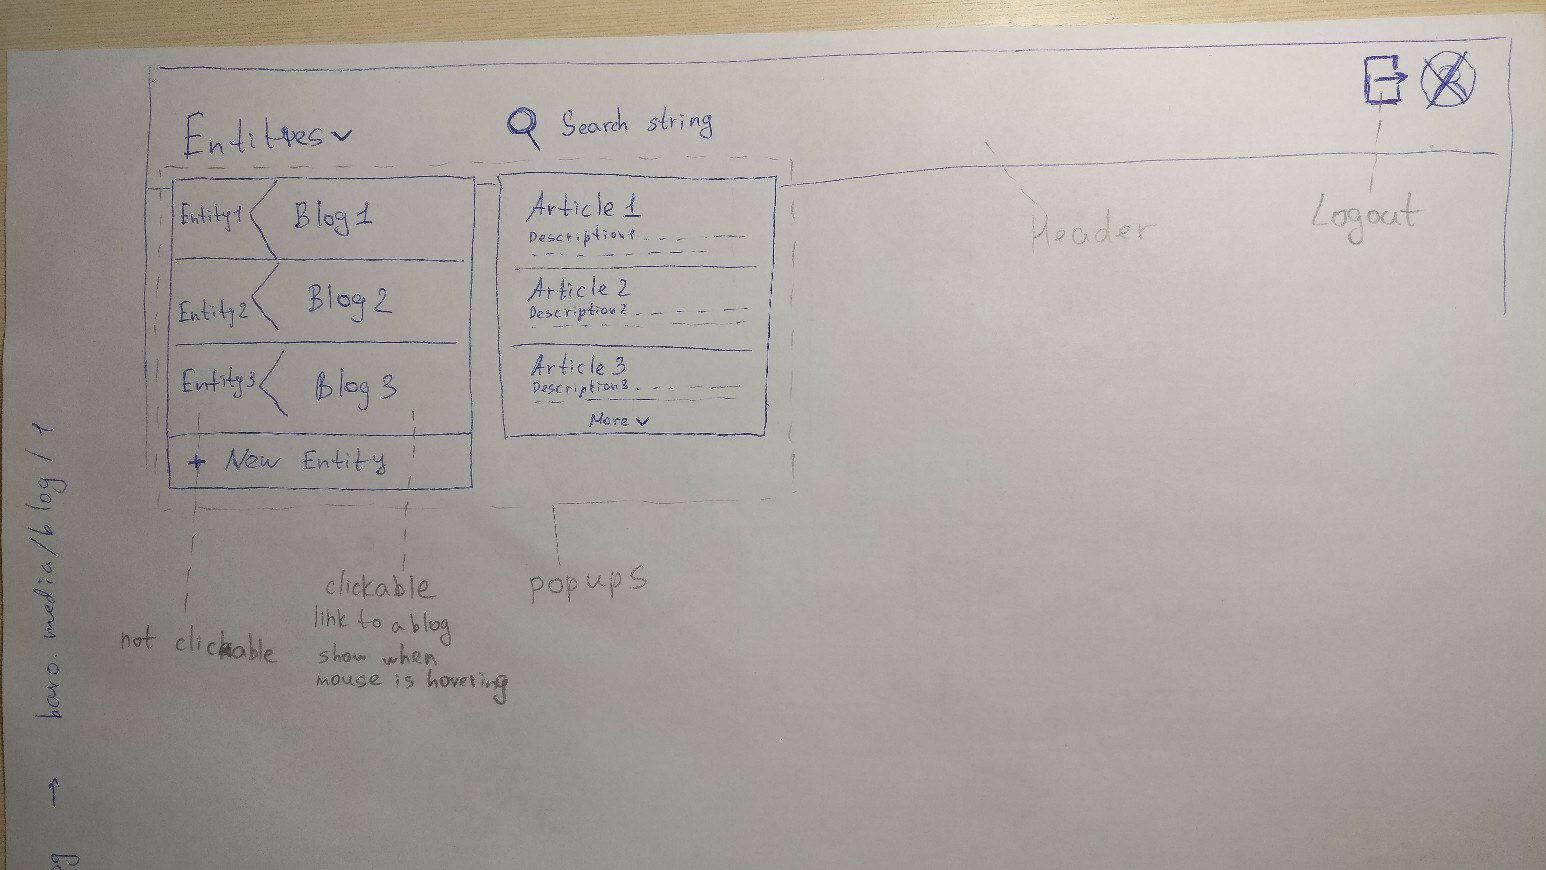 Entities
Search string
Entity1
Blog 1
Entity2
Blog 2
Entity3
Blog 3
+ New Entity
Article 1
Description1
Article 2
Description2
Article 3
Description3
More
Header
Logout
not clickable
clickable
link to a blog
show when
mouse is hovering
popups
→ baro.media/blog/1